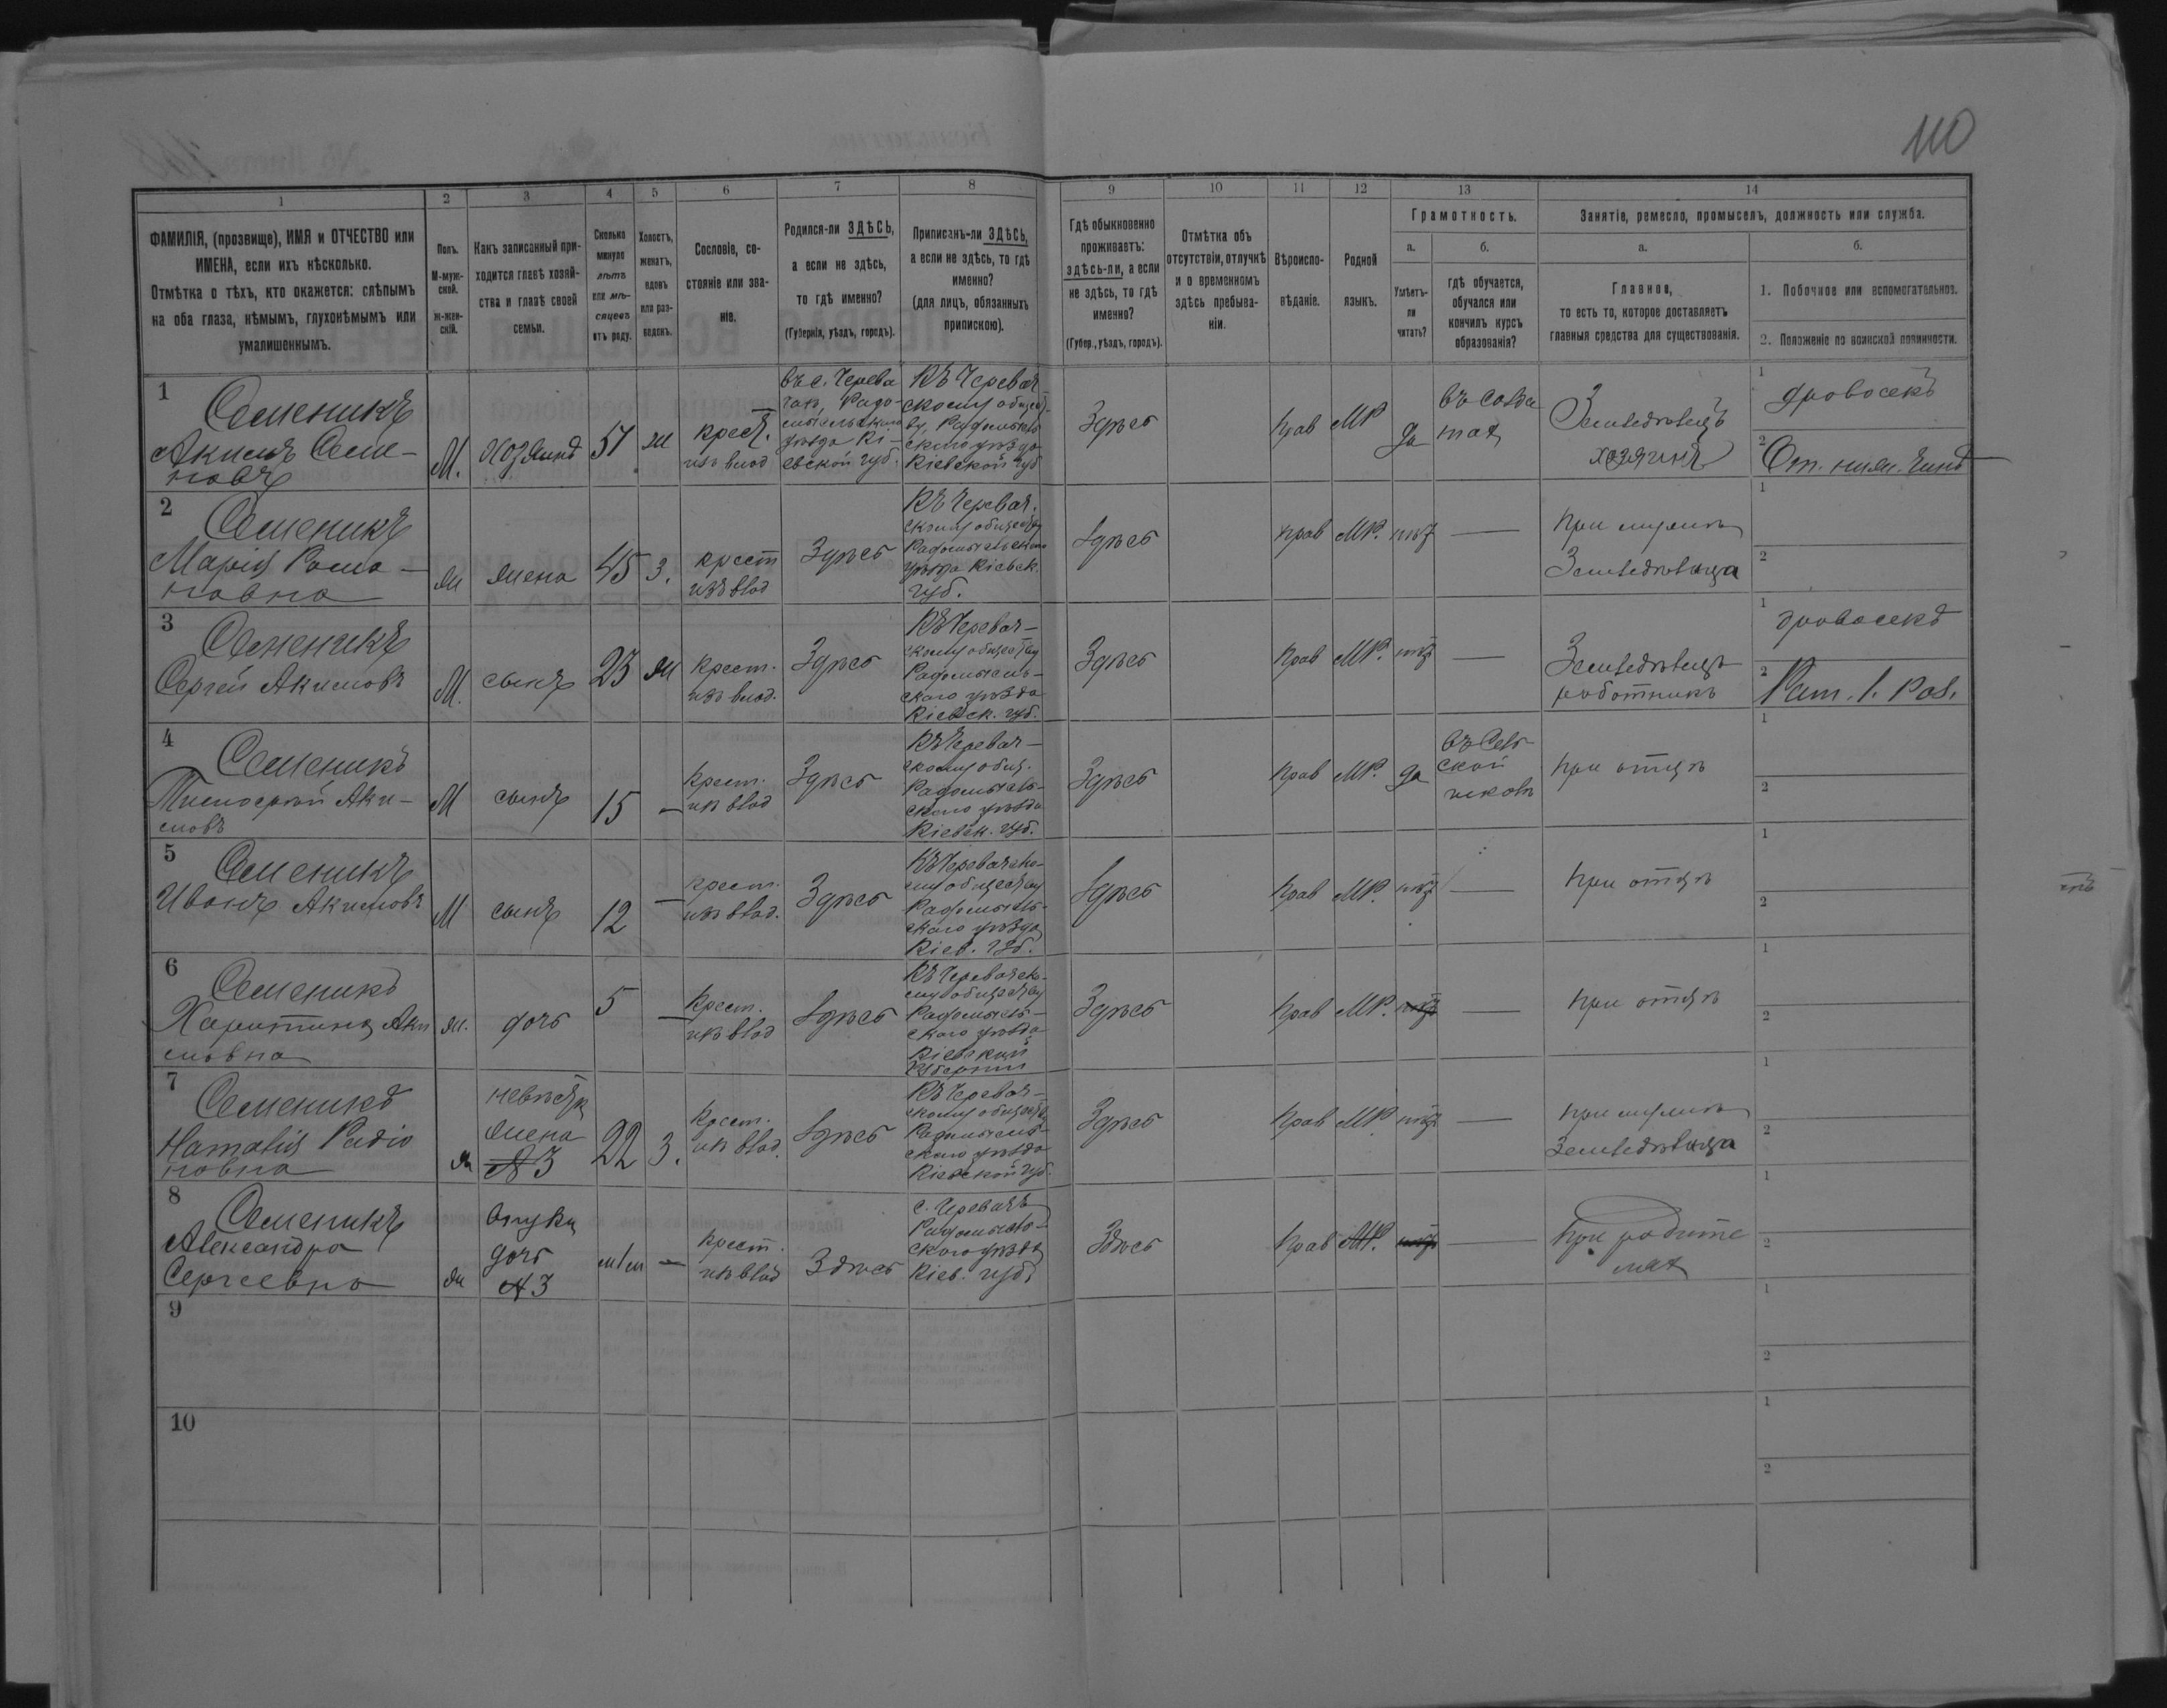 110
1 2 3 4 5 6 7 8 9 10 11 12 13 14
ФАМИЛІЯ, (прозвище), ИМЯ и ОТЧЕСТВО или
ИМЕНА, если ихъ нѣсколько.
Отмѣтка о тѣхъ, кто окажется: слѣпымъ
на оба глаза, нѣмымъ, глухонѣмымъ или
умалишеннымъ.
Полъ.
М-муж-
ской.
Ж-жен-
скій.
Какъ записанный при-
ходится главѣ хозяй-
ства и главѣ своей
семьи.
Сколько
минуло
лѣтъ
или мѣ-
сяцевъ
отъ роду.
Холостъ,
женатъ,
вдовъ
или раз-
веденъ.
Сословіе, со-
стояніе или зва-
ніе.
Родился-ли ЗДѢСЬ,
а если не здѣсь,
то гдѣ именно?
(Губернія, уѣздъ, городъ).
Приписанъ-ли ЗДѢСЬ,
а если не здѣсь, то гдѣ
именно?
(для лицъ, обязанныхъ
припискою).
Гдѣ обыкновенно
проживаетъ:
здѣсь-ли, а если
не здѣсь, то гдѣ
именно?
(Губер., уѣздъ, городъ).
Отмѣтка объ
отсутствіи, отлучкѣ
и о временномъ
здѣсь пребыва-
ніи.
Вѣроиспо-
вѣданіе.
Родной
языкъ.
Грамотность.
а.
Умѣетъ-
ли
читать?
б.
гдѣ обучается,
обучался или
кончилъ курсъ
образованія?
Занятіе, ремесло, промыселъ, должность или служба.
а.
Главное,
то есть то, которое доставляетъ
главныя средства для существованія.
б.
1. Побочное или вспомогательное.
2. Положеніе по воинской повинности.
1
Семеникъ
Акимъ Семе-
новъ
М.
хозяинъ
57
ж
крест.
изъ влад
въ с. Черева
чах, Радо-
мысльскаго
уѣзда Кі-
евской губ.
Къ Черевач
скому общест
ву, Радомысль
скаго уѣзда
Кіевской губ
Здѣсь
прав
МР
да
въ солда
тах
Земледѣлецъ
хозяинъ
1
дровосекъ
2
От. нижн. чинъ
2
Семеникъ
Марія Рома-
новна
ж
жена
45
З.
крест
изъ влад
Здѣсь
Къ Черевач.
скому обществу
Радомысльскаго
уѣзда Кіевск.
губ.
Здѣсь
прав
МР.
нѣт
—
при мужѣ
Земледѣльца
1
2
3
Семеникъ
Сергей Акимовъ
М.
сынъ
23
ж
крест.
изъ влад.
Здѣсь
Къ Черевач-
скому обществу
Радомысль-
скаго уѣзда
Кіевск. губ.
Здѣсь
прав
МР.
нѣт
—
Земледѣлецъ
работникъ
1
дровосекъ
2
Рат. 1. Раз.
4
Семеникъ
Тимофей Аки-
мовъ
М
сынъ
15
—
крест.
изъ влад
Здѣсь
Къ Черевач-
скому общ.
Радомысль-
скаго уѣзда
Кіевск. губ.
Здѣсь
прав
МР.
да
въ Сель
ской
школѣ
при отцѣ
1
2
5
Семеникъ
Иванъ Акимовъ
М
сынъ
12
—
крест.
изъ влад.
Здѣсь
Къ Черевачско-
му обществу
Радомысль-
скаго уѣзда
Кіев. губ.
Здѣсь
прав
МР.
нѣт
—
при отцѣ
1
2
6
Семеникъ
Харитина Аки
мовна
ж.
дочь
5
—
крест.
изъ влад
Здѣсь
Къ Черевачско-
му обществу
Радомысль-
скаго уѣзда
Кіевской
Губерніи
Здѣсь
прав
МР.
нѣт
—
при отцѣ
1
2
7
Семеникъ
Наталія Радіо
новна
ж
невѣстка
жена
№3
22
З.
крест.
изъ влад.
Здѣсь
Къ Черевач-
скому обществу
Радомысль-
скаго уѣзда
Кіевской губ.
Здѣсь
прав
МР
нѣт
—
при мужѣ
земледѣльца
1
2
8
Семеникъ
Александра
Сергеевна
ж
внучка
дочь
№3
—
крест.
изъ влад
Здѣсь
с. Черевачъ
Радомысль-
скаго уѣзда
Кіев. губ.
Здѣсь
прав
МР.
нѣт
—
при родите
лях
1
2
9
1
2
10
1
2